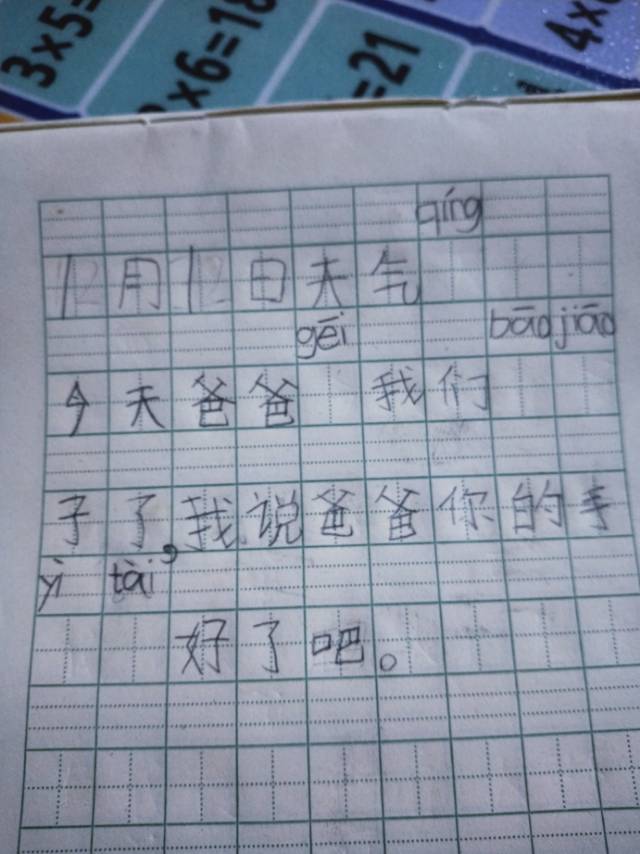 3×5=
×6=18
=21
4×
qíng
12月12日天气
gēi bāo jiāo
今天爸爸 我们
子了,我说爸爸你的手
yì tài
好了吧。